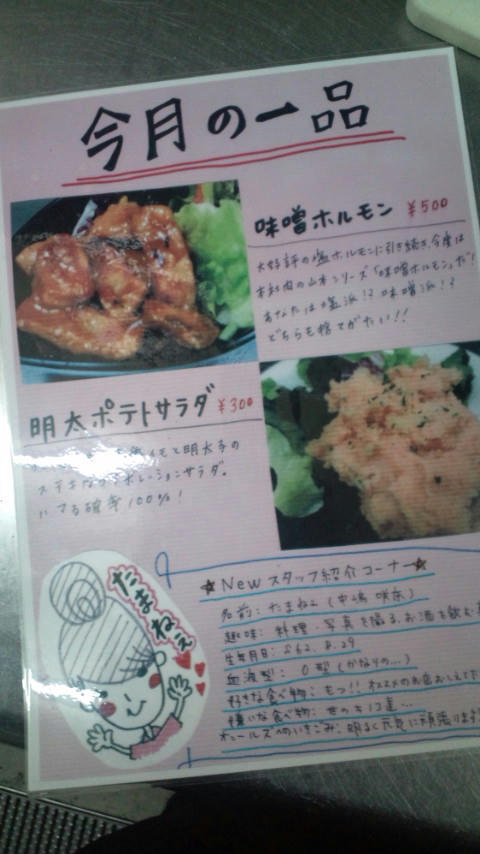 今月の一品
味噌ホルモン ¥500
大好評の塩ホルモンに引き続き、今度は
シリーズ「味噌ホルモン」だ!
あなたは塩派!?味噌派!?
どちらも捨てがたい!!
明太ポテトサラダ ¥300
イモと明太子の
ステキなコラボレーションサラダ。
ハマる確率100%!
たまねぇ
★Newスタッフ紹介コーナー★
名前:たまねぇ(中嶋
趣味:料理・写真を撮る、お酒を飲む
生年月日:S62.8.29
血液型:O型(かなりの…)
好きな食べ物:もつ!!オススメのお店おしえて
嫌いな食べ物:キノコ
へのいきごみ:明るく元気に頑張ります